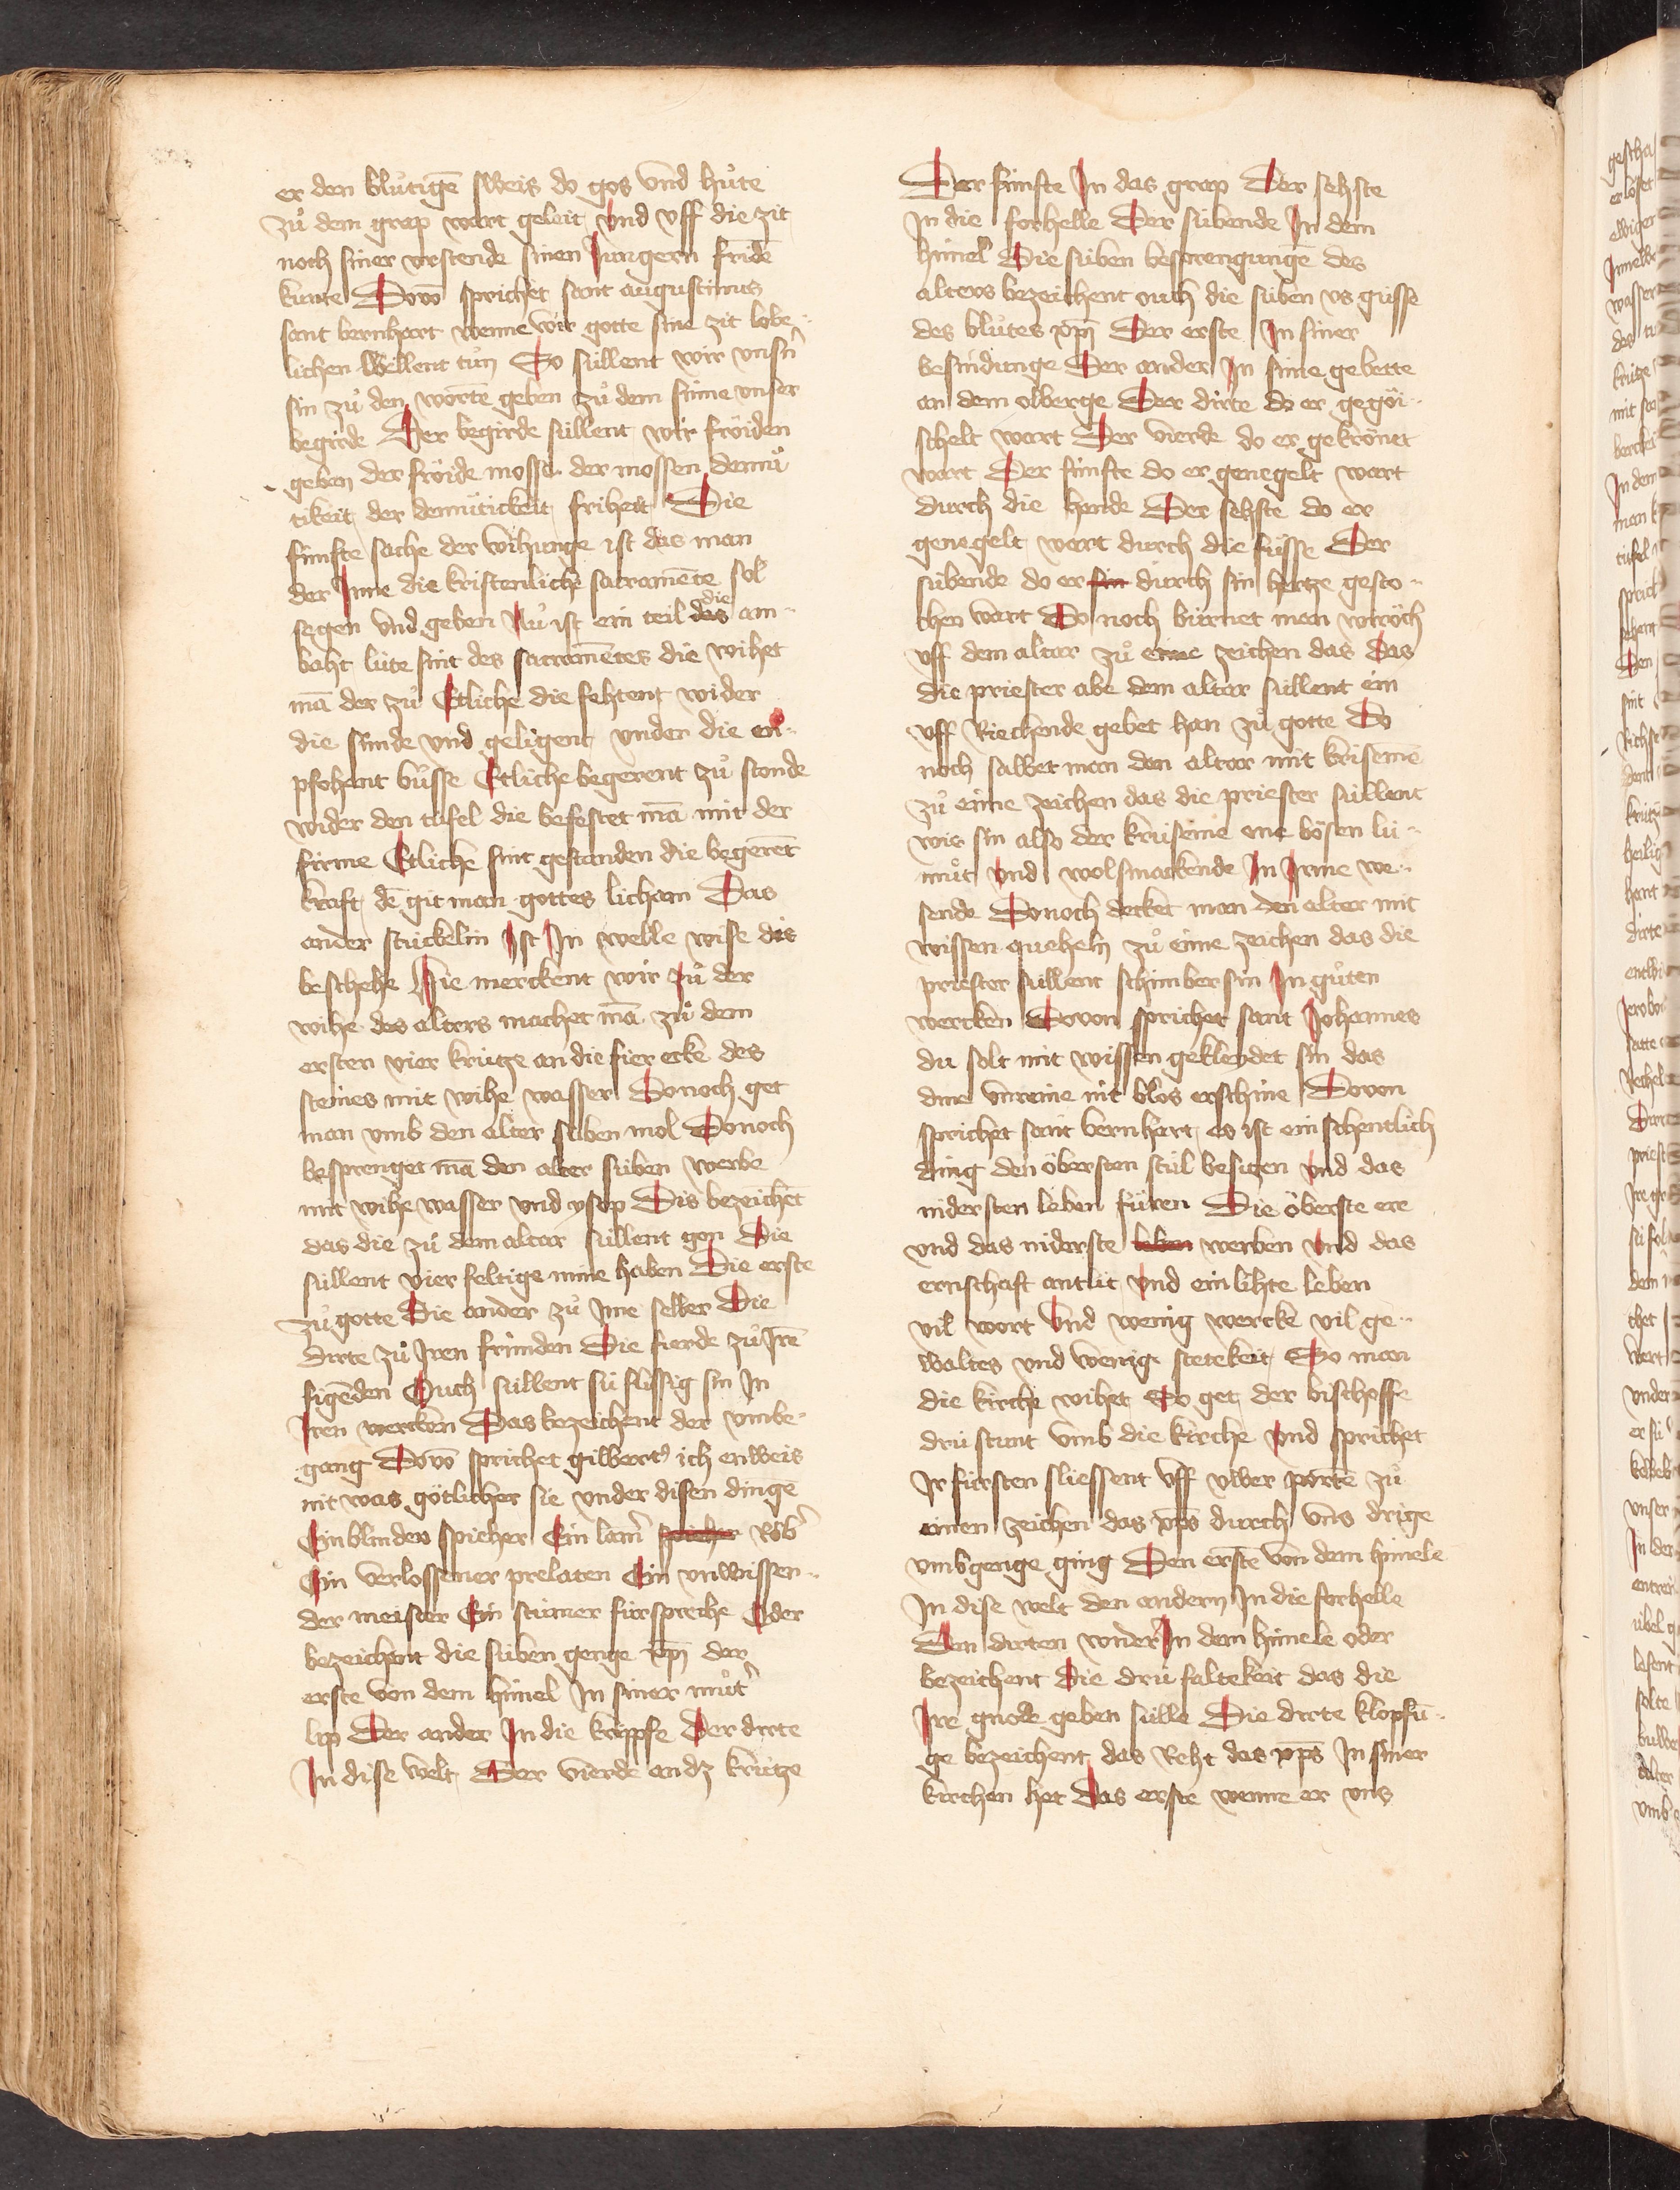 er den blůtigē sweis do gos vnd hůte
zů dem grap wart geleit vnd vff die zit
noch siner vrstende sinen Jungern fridē
kunte Dovō sprichet sant augustinus
sant bernhart wenne wir gotte sine zit lobe
lichen Wellent tůn So süllent wir vnsn̄
sin zů den wortē geben zů dem sinne vnser
begirde Der begirde süllent wir fröiden
geben der fröide mosse der mossen demů
tikeit der demütickeit friheit Die
fünfte sache der wihunge ist das man
der Inne die kristenliche sacramēte sol
segen vnd geben Nů ist ein teil des die am
baht lüte sint des sacramētes die wihet
mā der zů Etliche die fehtent wider
die sünde vnd geligent vnder die en
pfohent bůsse Etliche begerent zů stonde
wider den tüfel die befestet mā mit der
firme Etliche sint gestanden die begerēt
kraft dē git man gottes licham Das
ander stückelin Ist In welle wise dis
beschehe Hie merckent wir zů der
wihe des alters machet mā zů dem
ersten vier krütze an die fier ecke des
steines mit wihe wasser Donoch get
man vmb den alter siben mol Donoch
besprenget mā den alter süben werbe
mit wihe wasser vnd ysop Dis bezeichēt
das die zů dem altar süllent gon Die
süllent vier feltige mine haben Die erste
zů gotte Die ander zů Ime selber Die
dirte zů Iren fründen Die fierde zů Irē
figēden Ouch süllent sü flissig sin In
Iren wercken Das bezeichent der vmbe
gang Dovō sprichet gilbert9 ich enweis
nit was götlicher sie vnder disen dingē
Ein blinden spieher Ein lam̄ Röb̄
Ein verlossener prelaten Ein vnwissen
der meister Ein stümer fürspreche Oder
bezeichent die süben genge xp̄i der
erste von dem himel In siner můt̄
lip Der ander In die krippfe Der dirte
In dise welt Der vierde an dz krütze
Der fünfte In das grap Der sehste
In die forhelle Der sübende In dem
himel Die süben besprengungē des
alters bezeichent ouch die süben vs güsse
des blůtes xp̄i Der erste In siner
besnidunge Der ander In sime gebette
an dem olberge Der dirte do er gegöi
schelt wart Der vierde do er gekrönet
wart Der fünfte do er genegelt wart
durch die hende Der sehste do er
genegelt wart durch die füsse Der
sübende do er sin durch sin hertze gesto
chen wart Do noch bürnet man wiröch
vff dem altar zů eime zeichen das das
die priester abe dem altar süllent ein
vff Riechende gebet han zů gotte Do
noch salbet man den altar mit krisemē
zů eime zeichen das die priester süllent
wis sin also der kriseme one bösen lü
můt vnd wolsmackende In Irme we
sende Donoch decket man den alter mit
wissen queheln zů eime zeichen das die
priester süllent schimber sin In gůten
wercken Dovon sprichet sant Johannes
du solt mit wissen gekleydet sin das
dine vnreine nit blos erschine Dovon
sprichet sant bernhert es ist ein schentlich
ding den öbersten stůl besitzen vnd das
nidersten leben füren Die öberste ere
vnd das niderste leben werben vnd das
ernschaft antlit vnd ein lihte leben
vil wort vnd wenig wercke vil ge
waltes vnd wenige stetekeit So man
die kirche wihet So get der bischoffe
drü stunt vmb die kirche vnd sprichet
Ir fürsten sliessent vff vwer portē zů
einen zeichen das xp̄s durch vns drige
vmbgenge ging Den erstē von dem himele
In dise welt den andern In die forhelle
Den dirten wider In dem himele oder
bezeichent die drü faltekeit das die
Ire gnode geben sülle Die dirte klopfū
ge bezeichent das Reht das xp̄s In siner
kirchen het Das erste wenne er vns